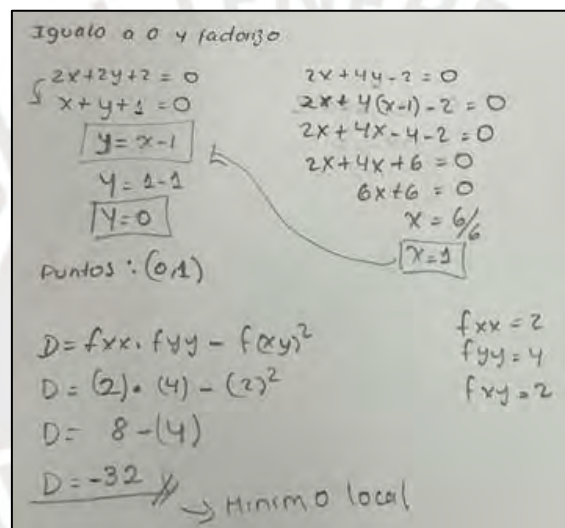 Igualo a 0 y factorizo
2x+2y+2 = 0
x+y+1 = 0
y = x-1
y = 1-1
y = 0
Puntos : (0,1)
2x+4y-2 = 0
2x+4(x-1)-2 = 0
2x+4x-4-2 = 0
2x+4x+6 = 0
6x+6 = 0
x = 6/6
x = 1
D = fxx. fyy - f(xy)²
D = (2). (4) - (2)²
D = 8-(4)
D = -32
→ Minimo local
fxx = 2
fyy = 4
fxy = 2